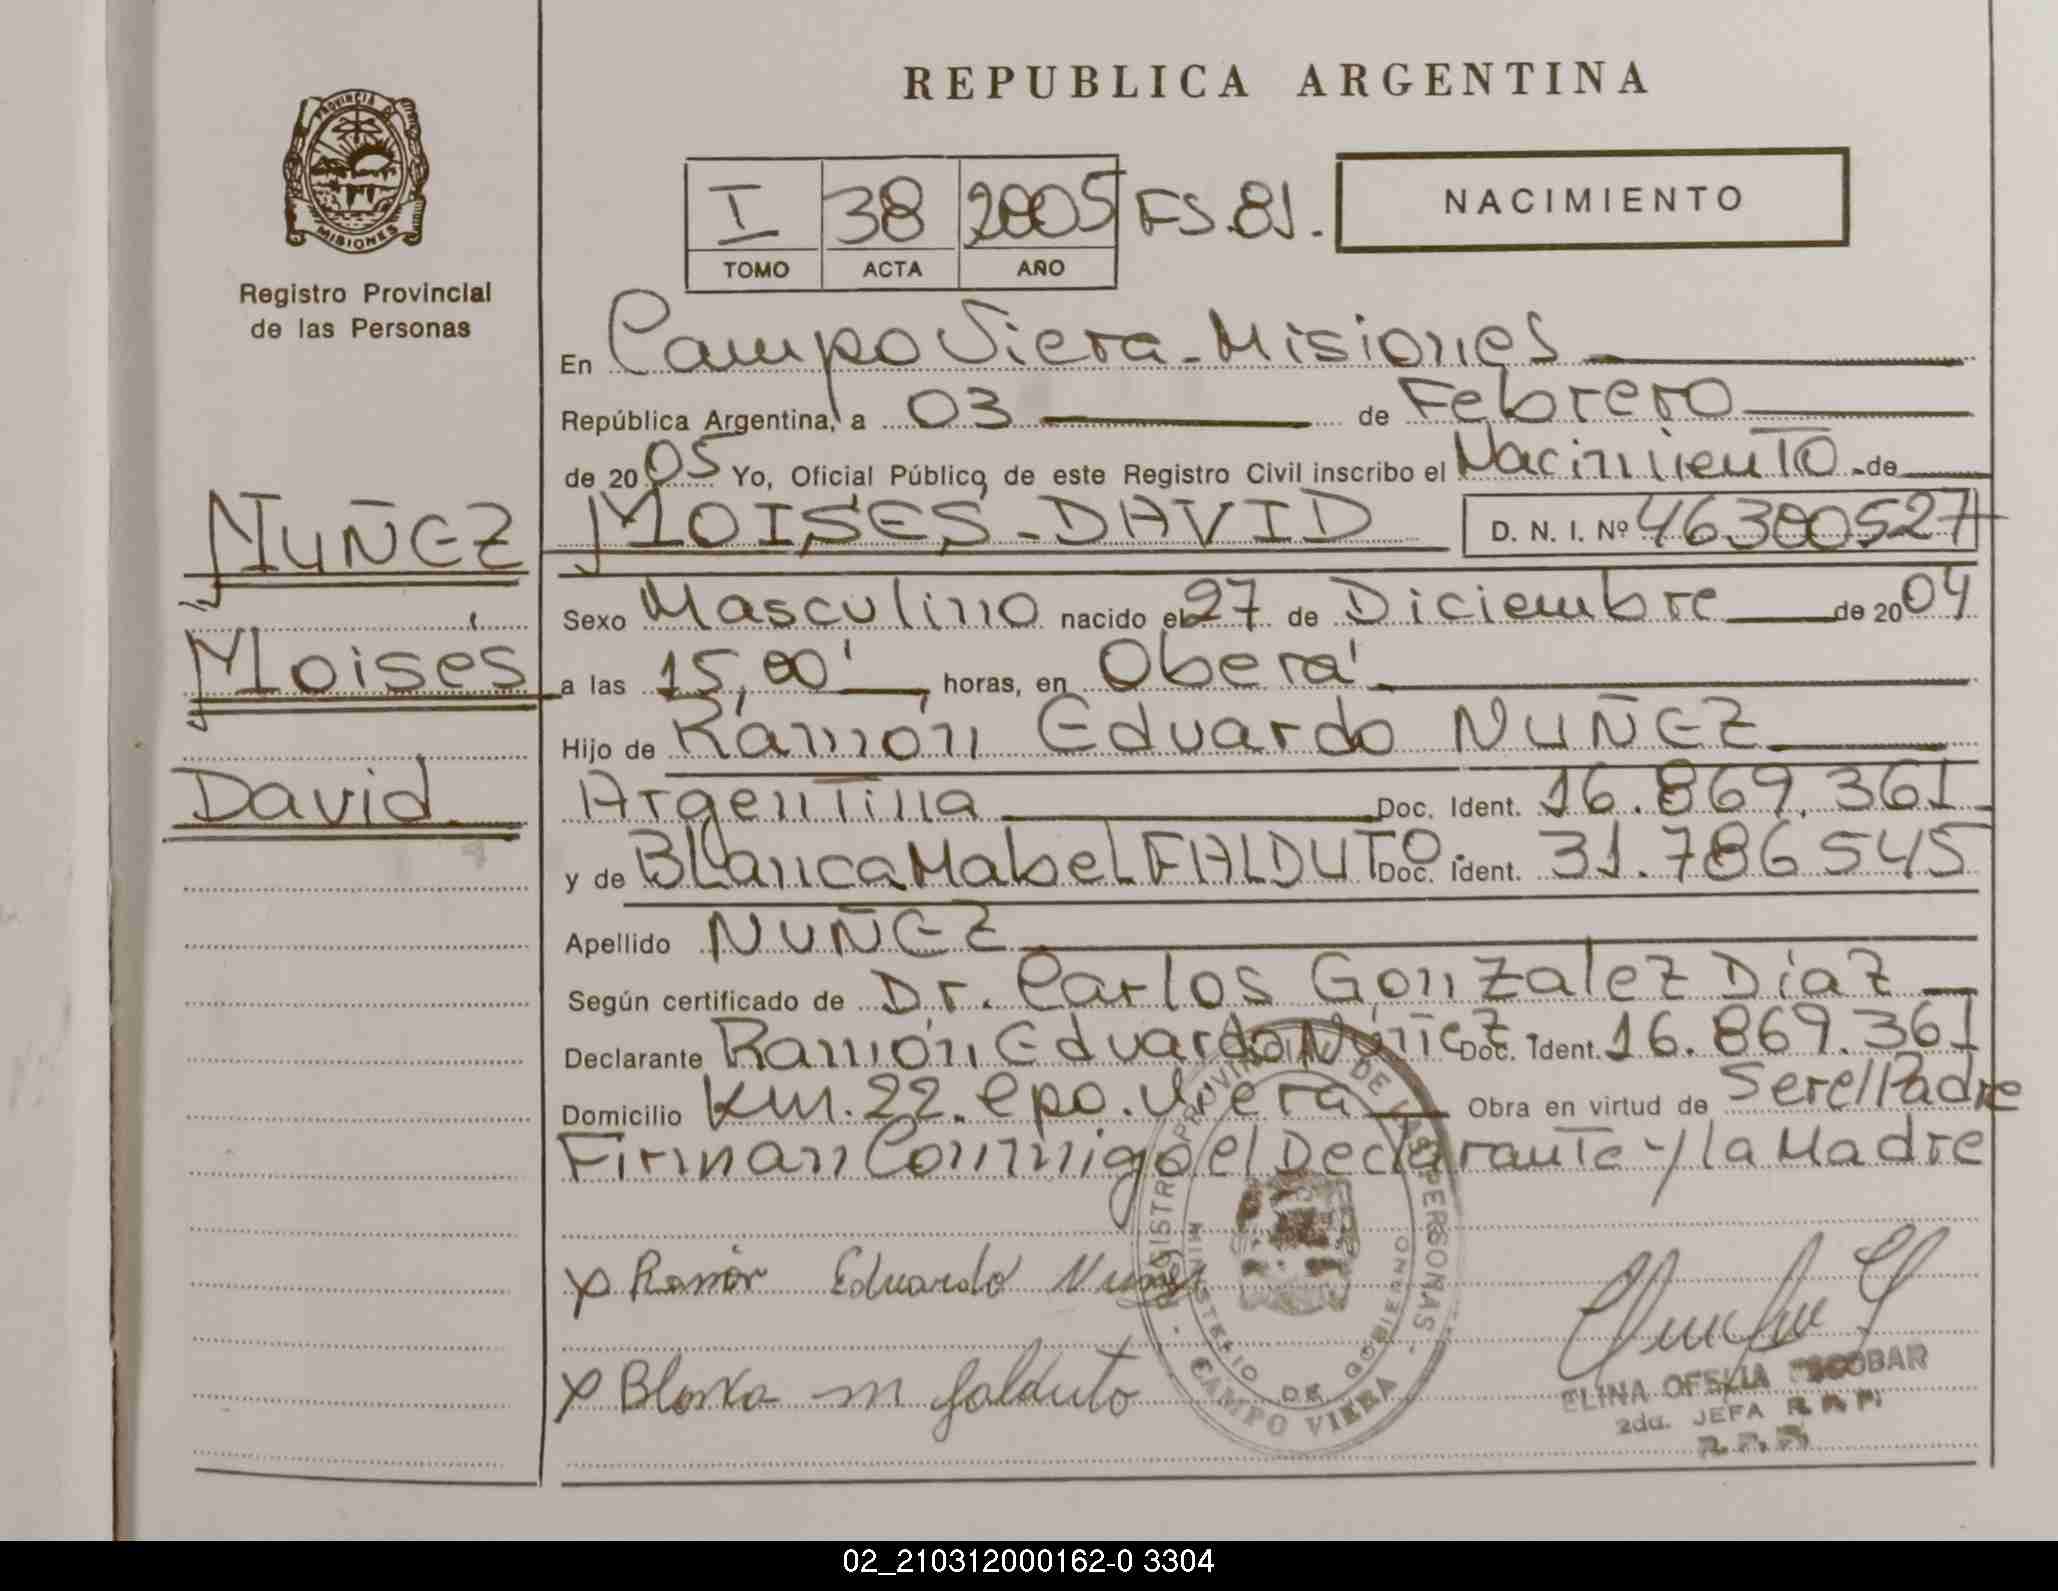 REPUBLICA ARGENTINA
PROVINCIA DE
MISIONES
Registro Provincial
de las Personas
I 38 2005 FS.81.
TOMO ACTA AÑO
NACIMIENTO
En Campo Viera-Misiones
República Argentina, a 03 de Febrero
de 2005 Yo, Oficial Público de este Registro Civil inscribo el Nacimiento de
NUÑEZ
MOISES-DAVID D. N. I. Nº 46300527
Sexo Masculino nacido el 27 de Diciembre de 2004
Moisés
a las 15,00' horas, en Obera'
Hijo de Ramón Eduardo NUÑEZ
David
Argentina Doc. Ident. 16.869.361
y de Blanca Mabel FALDUTO Doc. Ident. 31.786545
Apellido NUÑEZ
Según certificado de Dr. Carlos Gonzalez Diaz
Declarante Ramón Eduardo Núñez Doc. Ident. 16.869.361
Domicilio Km.22.Cpo.Viera Obra en virtud de Ser el Padre
Firman Conmigo el Declarante y la Madre
x Ramón Eduardo Nuñez
x Blanca M Falduto
REGISTRO PROVINCIAL DE LAS PERSONAS
MINISTERIO DE GOBIERNO
CAMPO VIERA
ELINA OFELIA ESCOBAR
2da. JEFA
02_210312000162-0 3304